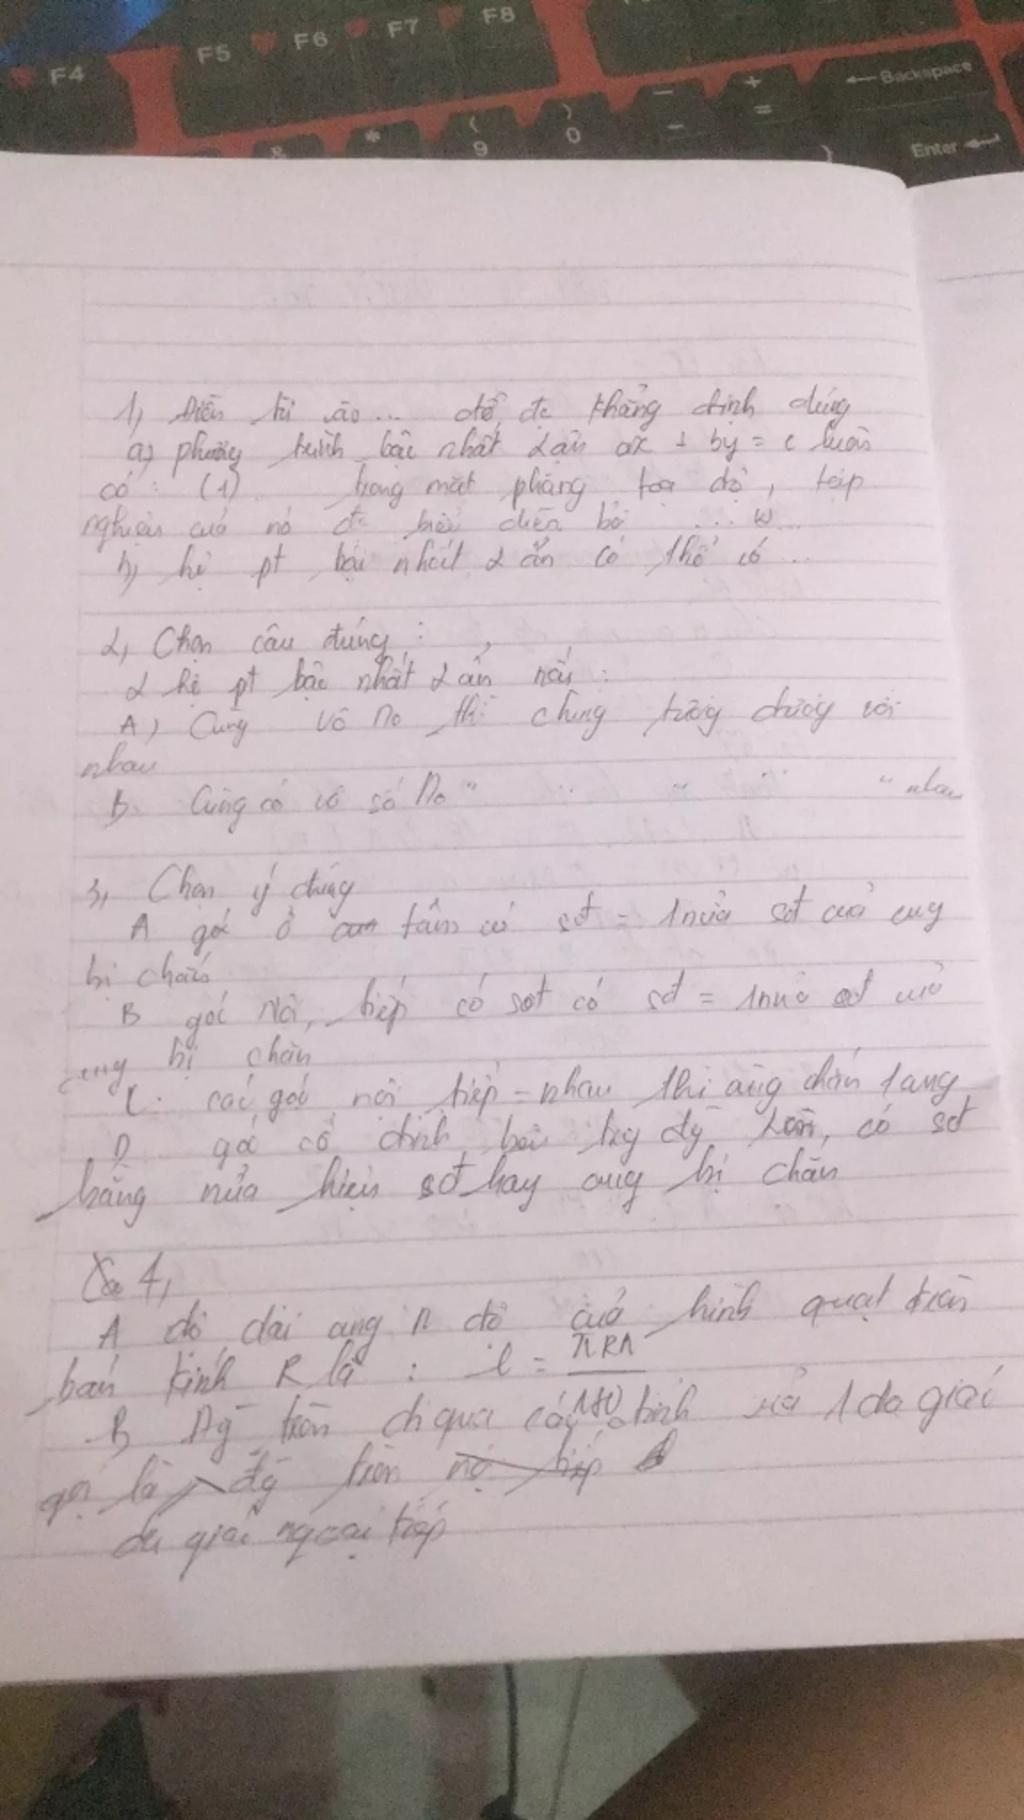 F4 F5 F6 F7 F8
← Backspace
& * ( 9 ) 0 _ - + =
} Enter
1, Điền từ vào ... để đc khẳng định đúng
a) phương trình bậc nhất 2 ẩn ax + by = c luôn
có : (1) trong mặt phẳng tọa độ, tập
nghiệm của nó đc biểu diễn bởi ...
b, hệ pt bậc nhất 2 ẩn có thể có ...
2, Chọn câu đúng :
2 hệ pt bậc nhất 2 ẩn nếu :
A) Cùng vô no thì chúng tương đương với
nhau
B. Cùng có vô số No " " " " nhau
3, Chọn ý đúng
A góc ở tâm có sđ = 1 nửa sđ của cung
bị chắn
B góc Nội tiếp có sđ có sđ = 1 nửa sđ của
cung bị chắn
C. các góc nội tiếp = nhau thì cùng chắn 1 cung
D góc có đỉnh bên đg tròn, có sđ
bằng nửa hiệu sđ hay cung bị chắn
4,
A độ dài cung n độ của hình quạt tròn
bán kính R là : l = πRn
180
B Đg tròn đi qua các đỉnh của 1 đa giác
gọi là đg tròn nội tiếp
đa giác ngoại tiếp